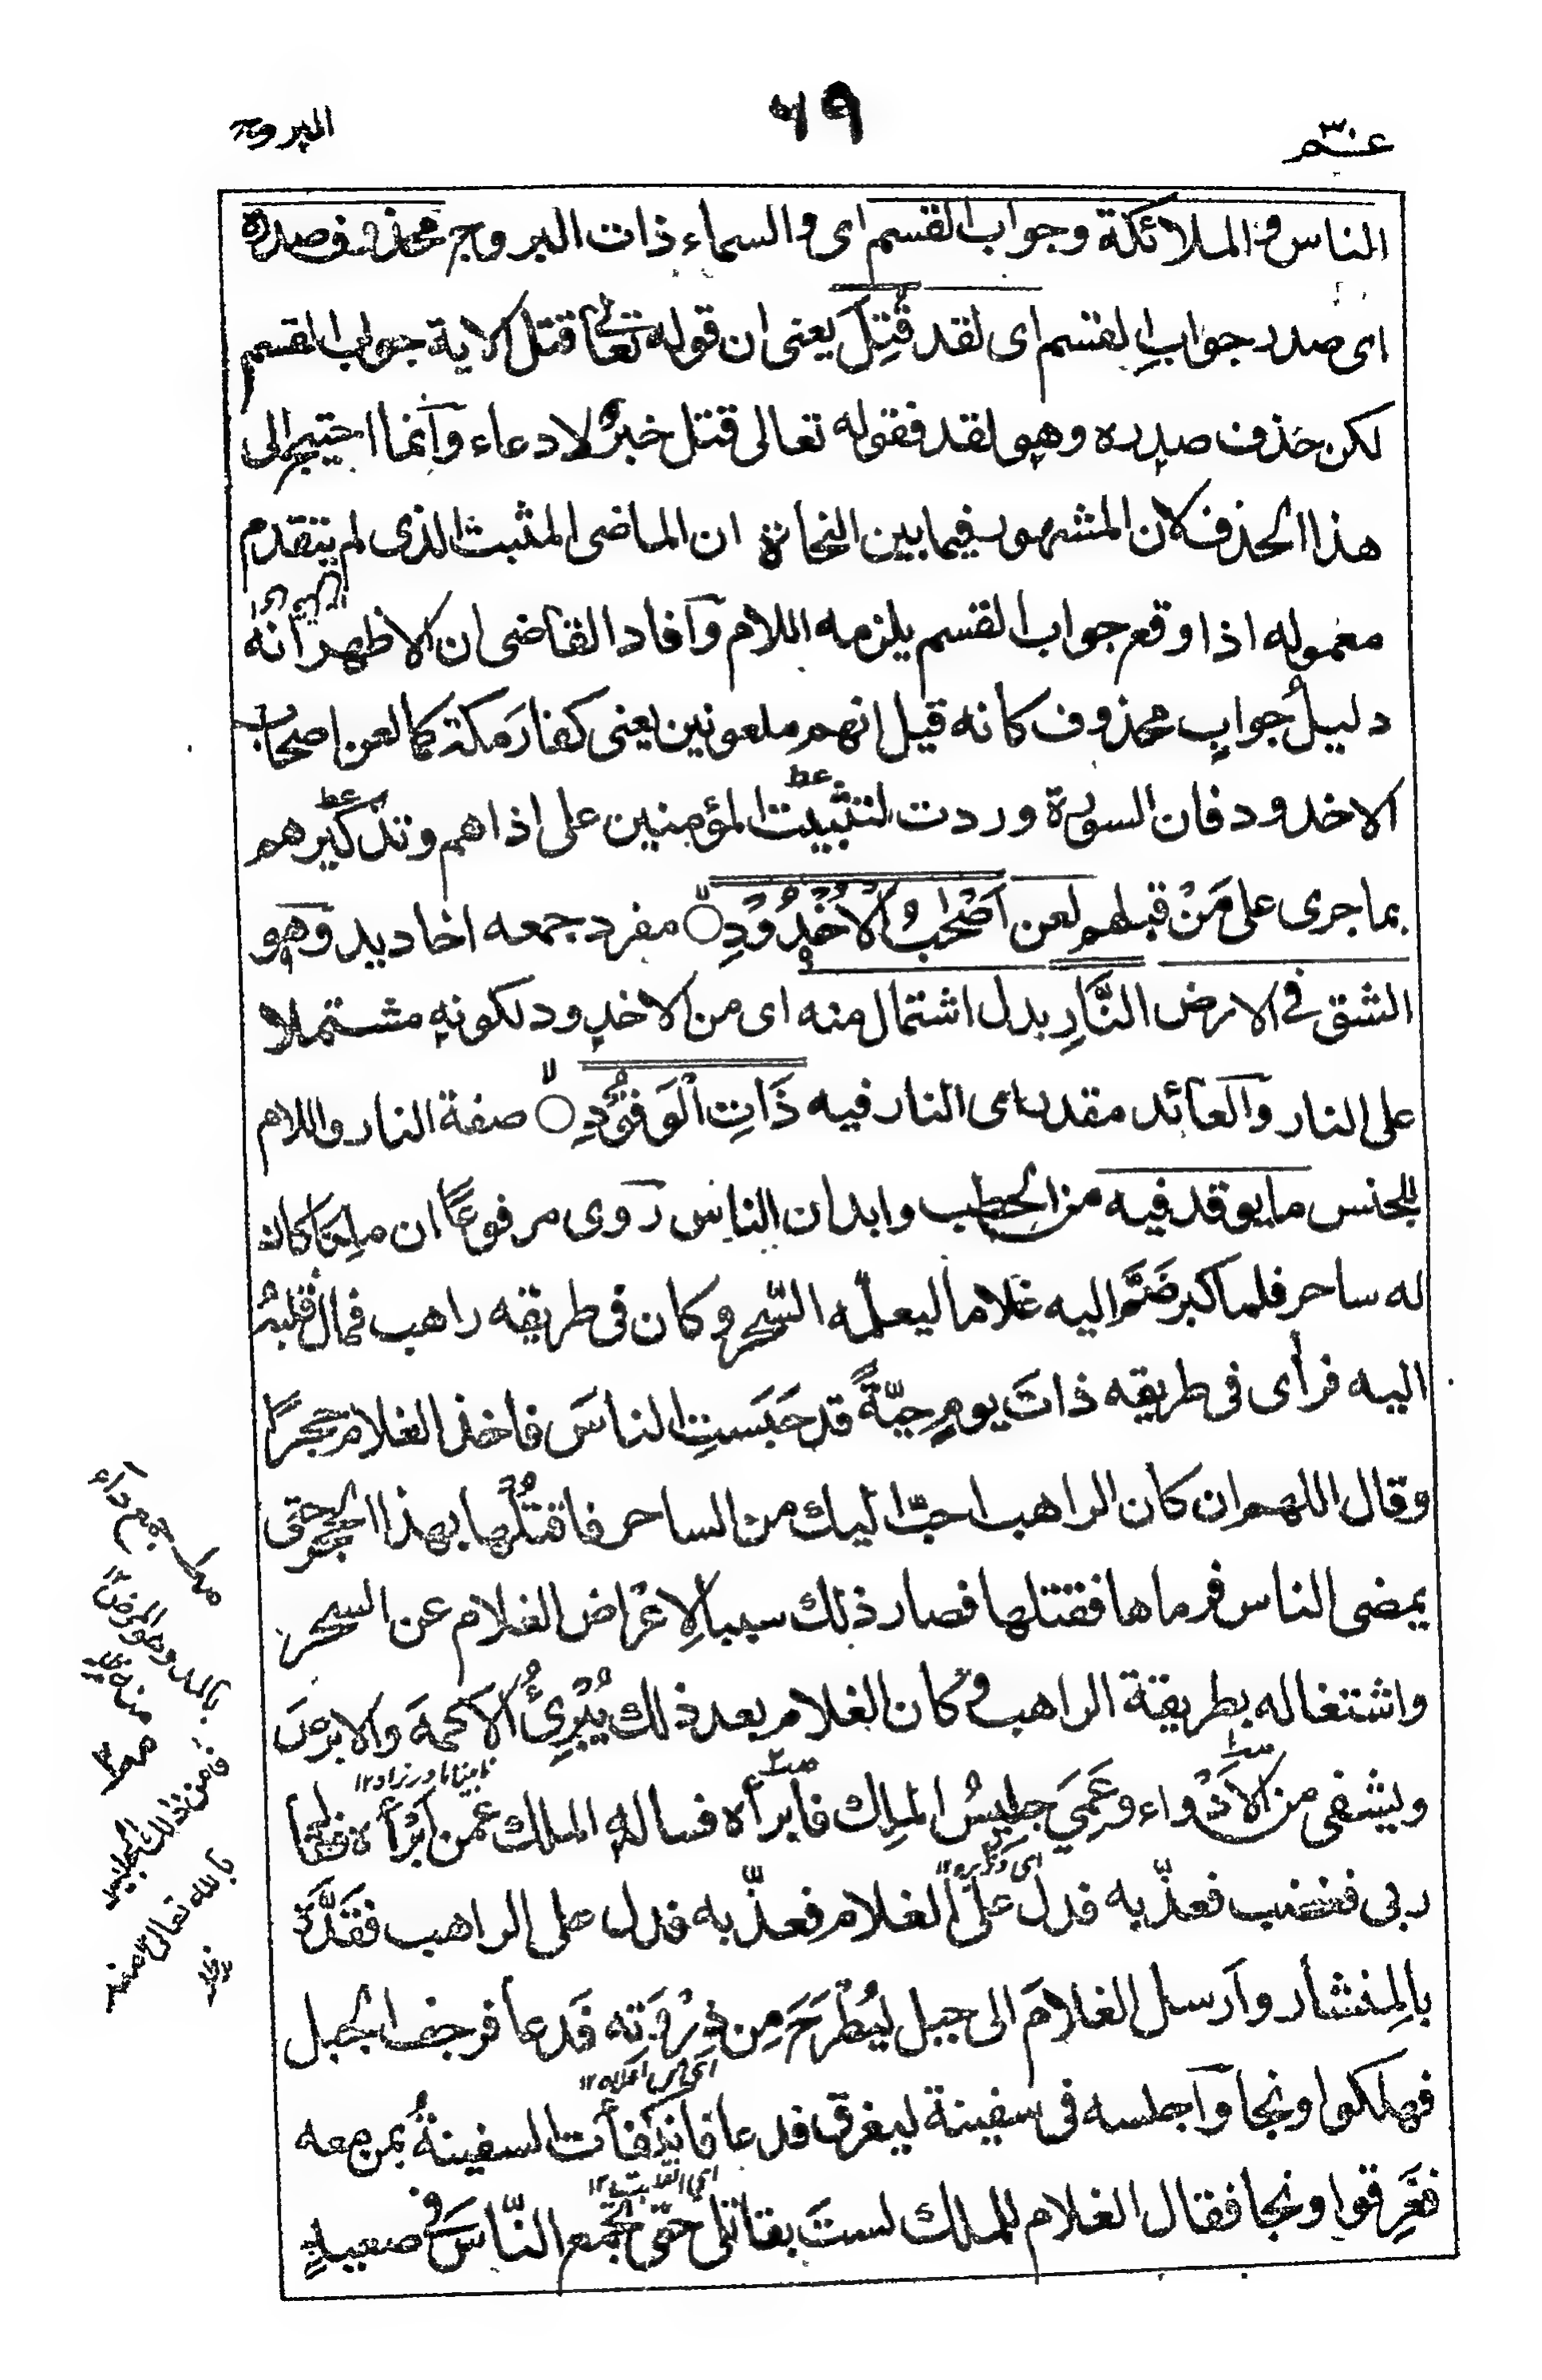 عم ٣٠
٦٩
البروج
الناس والملائكة وجواب القسم اى والسماء ذات البروج محذوف صدره
اى صدر جواب القسم اى لقد قُتِلَ يعنى ان قوله تعالى قتل الاية جواب القسم
لكن حذف صدره وهو لقد فقوله تعالى قتل خبر لا دعاء وانما احتيج الى
هذا الحذف لان المشهور فيما بين النحاة ان الماضى المثبت الذى لم يتقدم
معموله اذا وقع جواب القسم يلزمه اللام وافاد القاضى ان الاظهر انه
دليلُ جوابٍ محذوف كانه قيل انهم ملعونين يعنى كفارَ مكة كما لعن اصحاب
الاخدود فان السورة وردت لتثبيت المؤمنين على اذاهم وتذكيرهم
بما جرى على مَنْ قبلهم لعن اَصْحٰبُ الْاُخْدُوْدِ ۝ مفرد جمعه اخاديد وهو
الشق فى الارض النَّارِ بدل اشتمال منه اى من الاخدود لكونه مشتملا
على النار والعائد مقدر اى النار فيه ذَاتِ الْوَقُوْدِ ۝ صفة النار واللام
للجنس ما يوقد فيه من الحطب وابدان الناس روى مرفوعًا ان ملِكًا كان
له ساحر فلما كبر ضَمَّ اليه غلاما ليعلّمه السّحر وكان فى طريقه راهب فمال قلبُهُ
اليه فرأى فى طريقه ذاتَ يومٍ حيّةً قد حَبَسَتِ الناسَ فاخذ الغلام حجرًا
وقال اللهم ان كان الراهب احبّ اليك من الساحر فاقتُلْها بهذا الحجر حتى
يمضى الناس فرماها فقتلها فصار ذلك سببا لاِعْراض الغلام عن السحر
واشتغاله بطريقة الراهب وكان الغلام بعد ذلك يُبْرِئُ الاكمهَ والابرصَ
نابينا مادر زاد١٢
ويشفى من الاَدْواء وعَمِىَ جليسُ الملِك فابرأه فساله الملك عمن اَبْرأه فقال
ربى فغضب فعذّبه فدل على الغلام فعذّبه فدل على الراهب فقَدَّه
بالمِنْشار وارسل الغلامَ الى جبل ليُطْرَحَ مِن ذِرْوَتِه فَدعا فرجف الجبل
اى من اعلاه١٢
فهلكوا ونجا واجلسه فى سفينة ليغرق فدعا فانكفأت السفينةُ بمن معه
اى انقلبت١٢
فغَرِقوا ونجا فقال الغلام للملك لستَ بقاتلى حتّى تجمع النّاسَ فى صعيدٍ
جمع داء
بالمد وهو المرض
منه
بالله تعالى منه